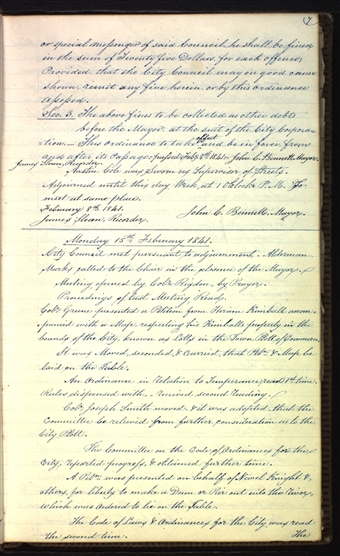 7
or special messenger of said Council, he shall be fined
in the sum of Twenty five Dollars for each offence,
Provided that the City Council may on good cause
shown, remit any fine herein, or by this ordinance
assessed.
Sec. 3. The above fines to be collected as other debts
before the Mayor, at the suit of the City Corpora-
tion. — This ordinance to take effect and be in force from
and after its passage: passed Feby. 8th 1841. John C. Bennett, Mayor.
James Sloan, Recorder.
Austin Cole was sworn as Supervisor of Streets.
Adjourned until this day Week, at 1 Oclock P. M. To
meet at same place.
February 8th 1841. John C. Bennett, Mayor.
James Sloan, Recorder.
Monday 15th February 1841.
City Council met pursuant to adjournment. Alderman
Marks called to the Chair in the absence of the Mayor.
Meeting opened by Cob. Rigdon, by Prayer.
Proceedings of last Meeting Read.
Cob. Green presented a Petition from Hiram Kimball accom-
panied with a Map, respecting his Kimballs property in the
bounds of the City, known as Lotts in the Town Plott of Commerce.
It was Moved, seconded, & Carried, that Petn. & Map be
laid on the Table.
An Ordinance in Relation to Temperance, read 1st. time.
Rules dispensed with, received second Reading.
Cob. Joseph Smith moved, & it was adopted, that the
Committee be relieved from further consideration as to the
City Plott.
The Committee on the Code of Ordinances for the
City, reported progress, & obtained further time.
A Petn. was presented on behalf of Newel Knight &
others, for liberty to make a Dam or Pier out into the River,
which was ordered to lie on the Table.
The Code of Laws & Ordinances for the City was read
the second time. The